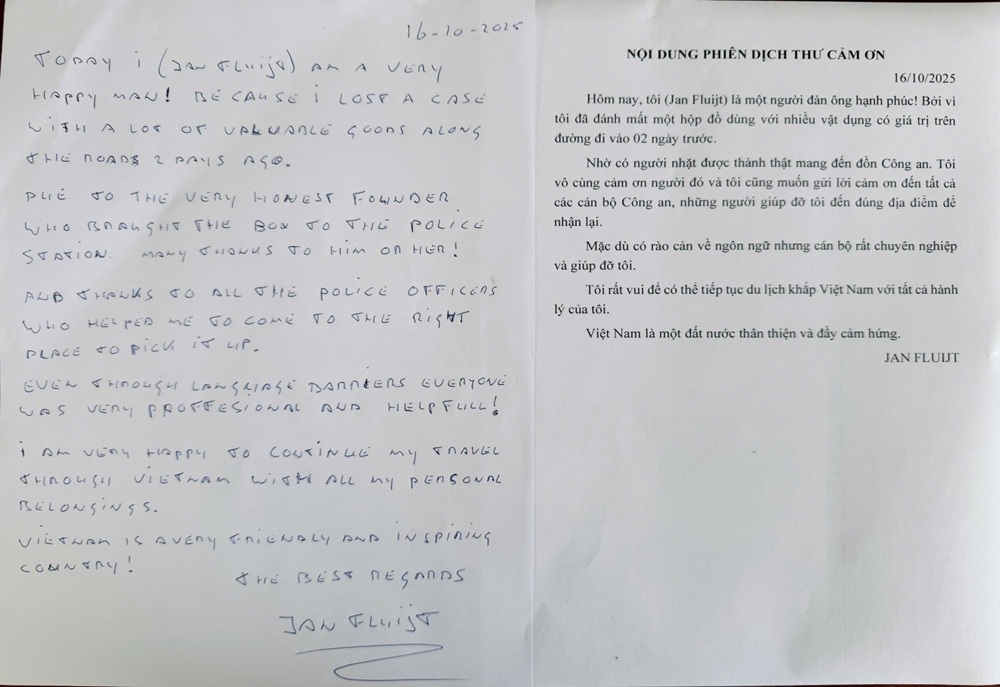 16-10-2025
TODAY I (JAN FLUIJT) AM A VERY
HAPPY MAN! BECAUSE I LOST A CASE
WITH A LOT OF VALUABLE GOODS ALONG
THE ROADS 2 DAYS AGO.
DUE TO THE VERY HONEST FOWNDER
WHO BRAUGHT THE BOX TO THE POLICE
STATION. MANY THANKS TO HIM OR HER!
AND THANKS TO ALL THE POLICE OFFICERS
WHO HELPED ME TO COME TO THE RIGHT
PLACE TO PICK IT UP.
EVEN THROUGH LANGUAGE BARRIERS EVERYONE
WAS VERY PROFFESIONAL AND HELPFULL!
I AM VERY HAPPY TO CONTINUE MY TRAVEL
THROUGH VIETNAM WITH ALL MY PERSONAL
BELONGINGS.
VIETNAM IS A VERY FRIENDLY AND INSPIRING
COUNTRY!
THE BEST REGARDS
JAN FLUIJT
NỘI DUNG PHIÊN DỊCH THƯ CẢM ƠN
16/10/2025
Hôm nay, tôi (Jan Fluijt) là một người đàn ông hạnh phúc! Bởi vì
tôi đã đánh mất một hộp đồ dùng với nhiều vật dụng có giá trị trên
đường đi vào 02 ngày trước.
Nhờ có người nhặt được thành thật mang đến đồn Công an. Tôi
vô cùng cảm ơn người đó và tôi cũng muốn gửi lời cảm ơn đến tất cả
các cán bộ Công an, những người giúp đỡ tôi đến đúng địa điểm để
nhận lại.
Mặc dù có rào cản về ngôn ngữ nhưng cán bộ rất chuyên nghiệp
và giúp đỡ tôi.
Tôi rất vui để có thể tiếp tục du lịch khắp Việt Nam với tất cả hành
lý của tôi.
Việt Nam là một đất nước thân thiện và đầy cảm hứng.
JAN FLUIJT